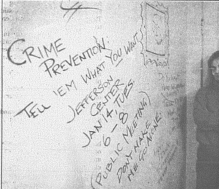 CRIME
PREVENTION:
TELL 'EM WHAT YOU WANT!
JEFFERSON
CENTER
JAN 14 TUES.
6-8
(PUBLIC MEETING)
DON'T